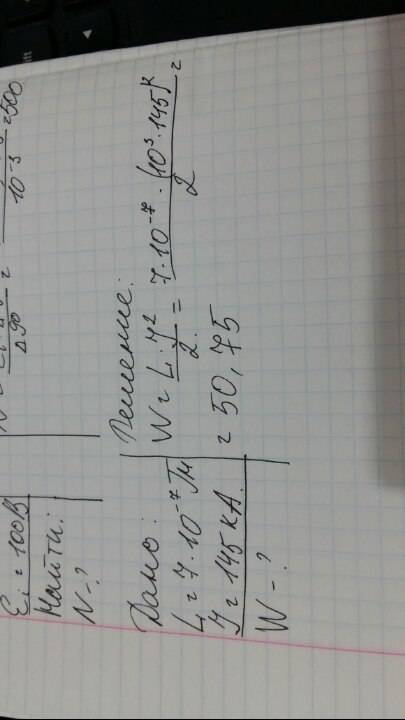 Ei = 100 В
Найти:
N - ?
10⁻³ = 500
Дано:
L = 7 · 10⁻⁷ Гн
J = 145 кА.
W - ?
Решение:
W = L · J² / 2. = 7 · 10⁻⁷ · (10³ · 145)² / 2 =
= 50,75